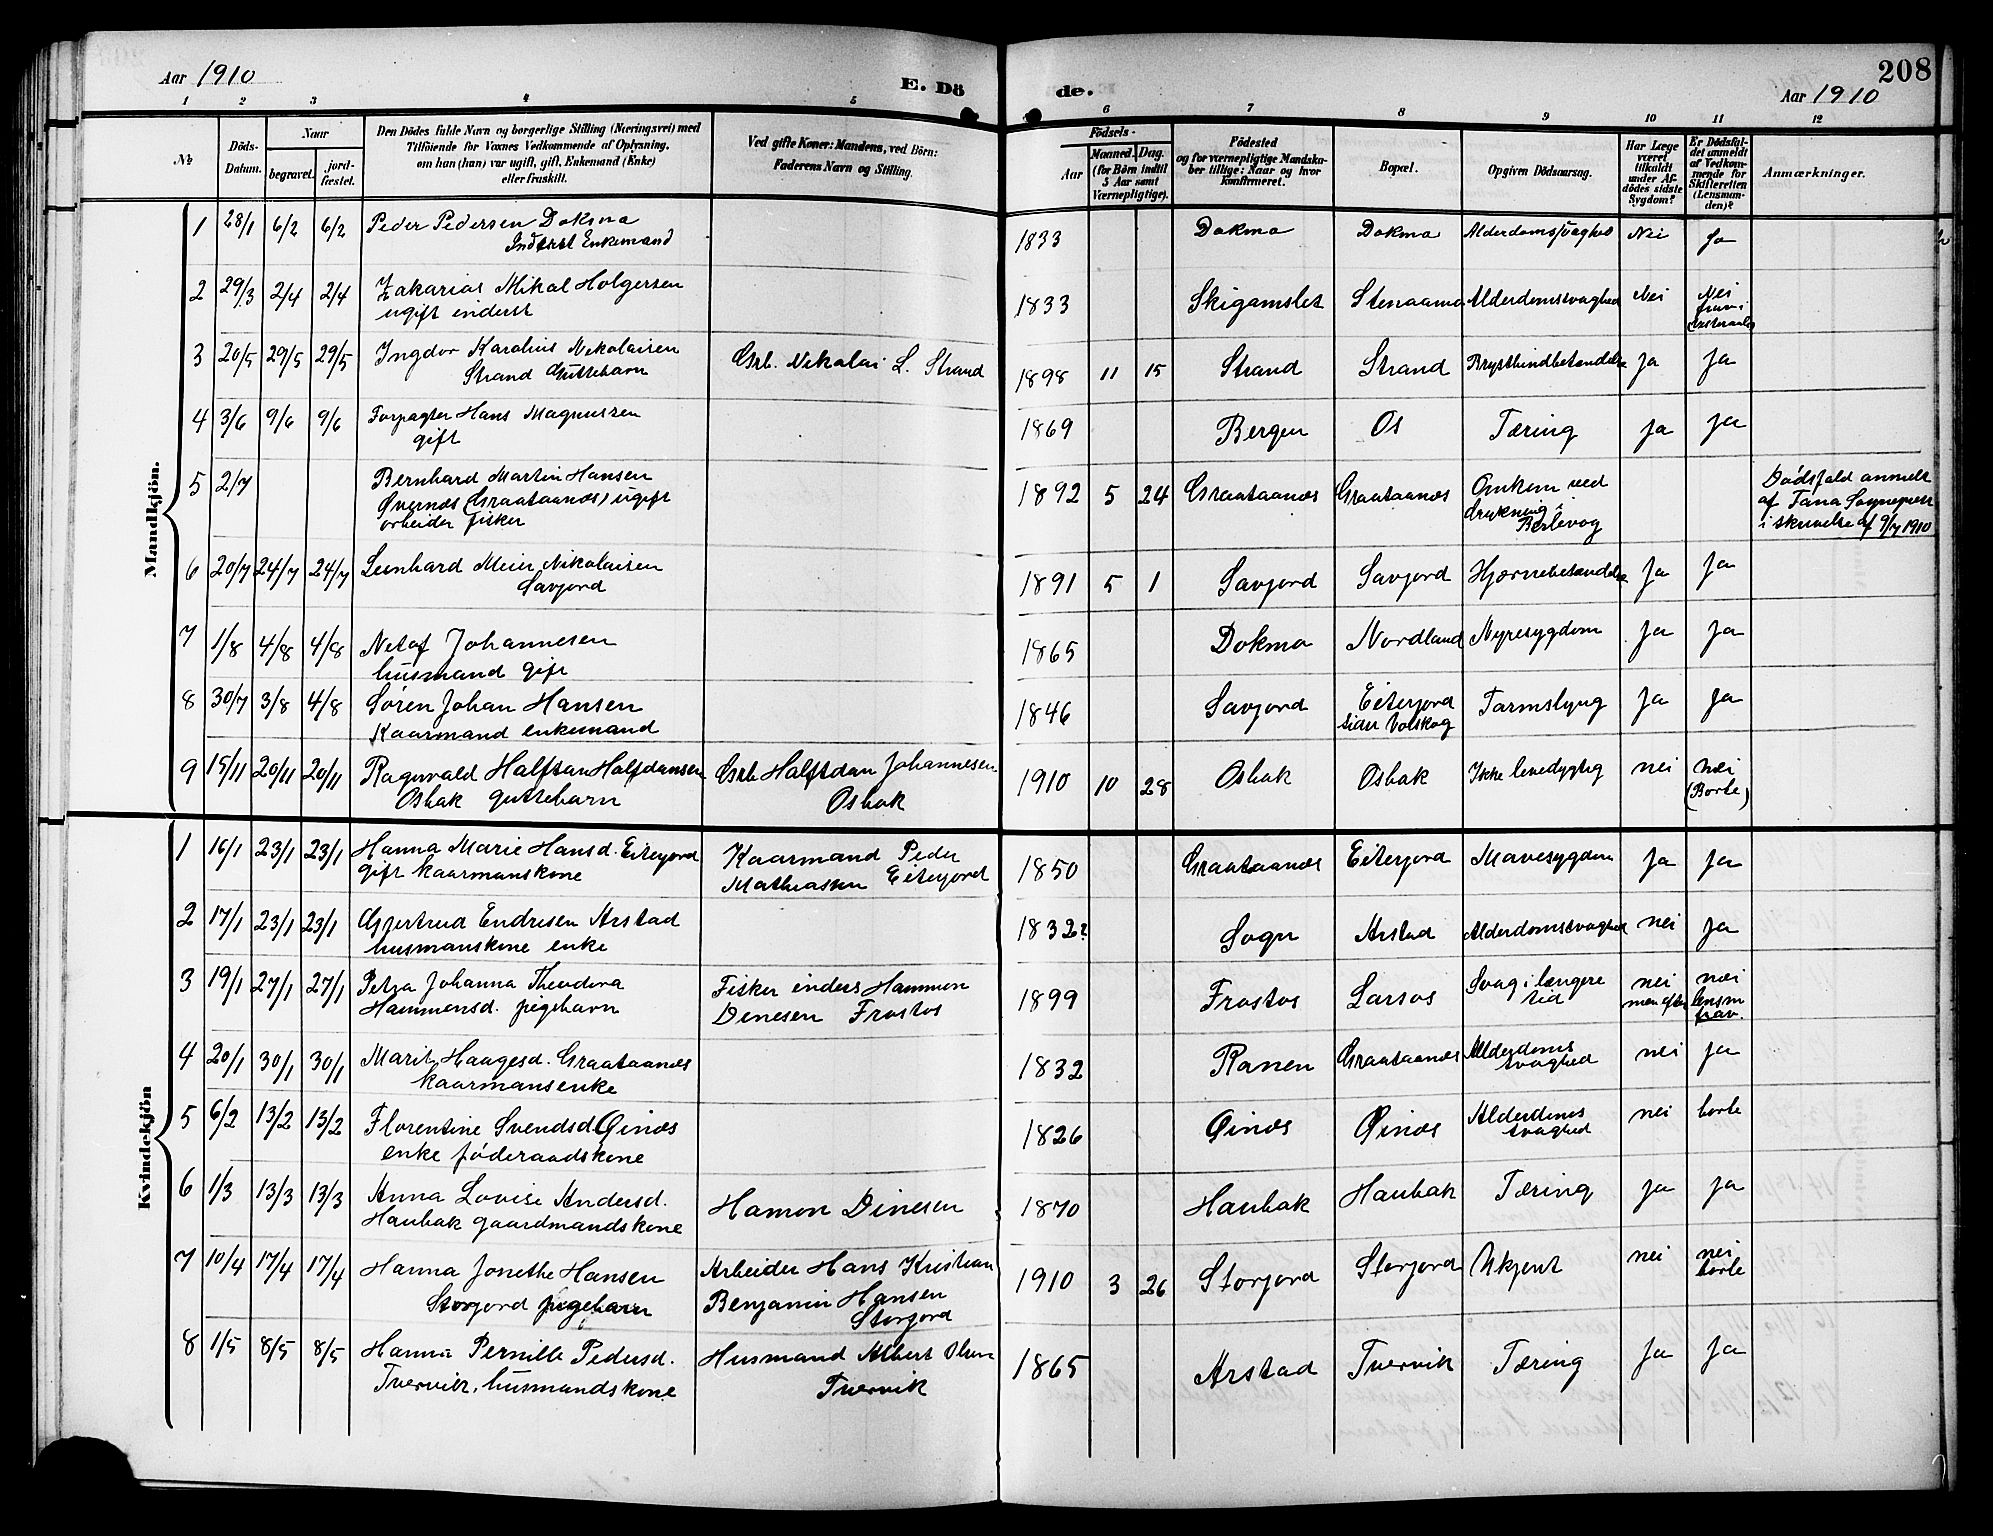 Aar 1910
E. Dö
de.
208
Aar 1910
1 2 3 4 5 6 7 8 9 10 11 12
No
Döds-Datum.
Naar
begravet.
jord-fæstet.
Den Dödes fulde Navn og borgerlige Stilling (Næringsvei) med
Tilföiende for Voxnes Vedkommende af Oplysning,
om han (hun) var ugift, gift, Enkemand (Enke)
eller fraskilt.
Ved gifte Koner: Mandens, ved Börn:
Faderens Navn og Stilling.
Födsels-
Aar
Maaned. Dag.
(for Börn indtil
5 Aar samt
Værnepligtige).
Födested
og for værnepligtige Mandska-
ber tillige: Naar og hvor
konfirmeret.
Bopæl.
Opgiven Dödsaarsag.
Har Læge
været
tilkaldt
under Af-
dödes sidste
Sygdom?
Er Dødsfal-
det anmeldt
af Vedkom-
mende for
Skifteretten
(Lensman-
den)?
Anmærkninger.
Mandkjön.
1 28/1 6/2 6/2 Peder Pedersen Dokmo 1833 Dokmo Dokmo Alderdomssvaghed Nei Ja
Inderst Enkemand
2 29/3 2/4 2/4 Zakarias Mikal Holgersen 1833 Skigamslet Stenaamo Alderdomssvaghed Nei Nei
ugift inderst
3 20/5 29/5 29/5 Ingdor Karolius Nikolaisen Grb. Nikolai L. Strand 1898 11 15 Strand Strand Brysthindbetændelse Ja Ja
Strand Guttebarn
4 3/6 9/6 9/6 Forpagter Hans Magnussen 1869 Bergen Os Tæring Ja Ja
gift
5 2/7 Bernhard Martin Hansen 1892 5 24 Graataanæs Graataanæs Omkom ved Dødsfald anmeldt
Øvernæs (Graataanæs) ugift drukning i af Tana Sognepr
arbeider fisker Berlevog i skrivelse af 9/7 1910
6 20/7 24/7 24/7 Leonhard Meier Nikolaisen 1891 5 1 Savjord Savjord Hjærnebetændelse Ja Ja
Savjord
7 1/8 4/8 4/8 Johannesen 1865 Dokmo Nordland Nyresygdom Ja Ja
husmand gift
8 30/7 3/8 4/8 Søren Johan Hansen 1846 Savjord Eiterjord Tarmslyng Ja Ja
Kaarmand enkemand
9 15/11 20/11 20/11 Ragnvald Halfdan Halfdansen Grb Halfdan Johannesen 1910 10 28 Osbak Osbak Ikke levedygtig nei nei
Osbak guttebarn Osbak (Borte)
Kvindekjön
1 16/1 23/1 23/1 Hanna Marie Hansd. Eiterjord Kaarmand Peder 1850 Graataanæs Eiterjord Mavesygdom Ja Ja
gift kaarmanskone Mathiassen Eiterjord
2 17/1 23/1 23/1 Gjertrud Endresen Arstad 1832? Sogn Arstad Alderdomssvaghed nei Ja
husmanskone enke
3 19/1 27/1 27/1 Petra Johanna Theodora Fisker inders Hammon 1899 Frostos Larsos Svag i længere nei nei
Hammonsd. pigebarn Dinesen Frostos tid men efter lensm
frav.
4 20/1 30/1 30/1 Marit Haagesd. Graataanæs 1832 Ranen Graataanæs Alderdoms nei ja
kaarmansenke svaghed
5 6/2 13/2 13/2 Florentine Svendsd Øinæs 1826 Øinæs Øinæs Alderdoms nei borte
enke føderaadskone svaghed
6 1/3 13/3 13/3 Anna Lovise Andersd. Hamon Dinesen 1870 Haubak Haubak Tæring ja ja
Haubak gaardmandskone
7 10/4 17/4 17/4 Hanna Jonethe Hansen Arbeider Hans Kristian 1910 3 26 Storjord Storjord Ukjent nei nei
Storjord pigebarn Benjamin Hansen borte
Storjord
8 1/5 8/5 8/5 Hanna Pernille Pedersd. Husmand Albert Olsen 1865 Arstad Tvervik Tæring Ja Ja
Tvervik, husmandskone Tvervik